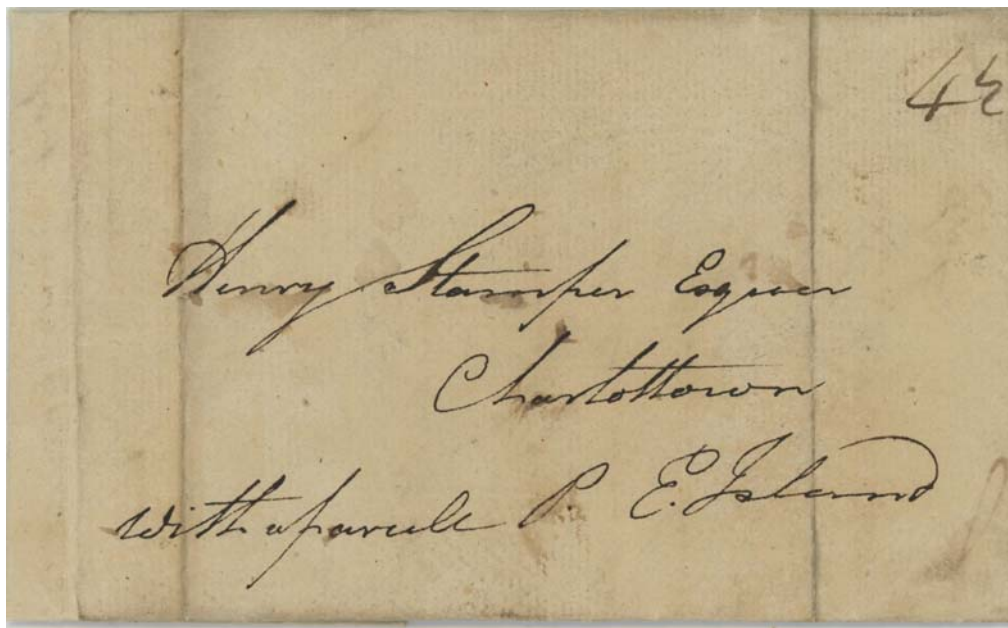 4½
Henry Stamper Esquer
Charlottown
with a parcell P. E. Island